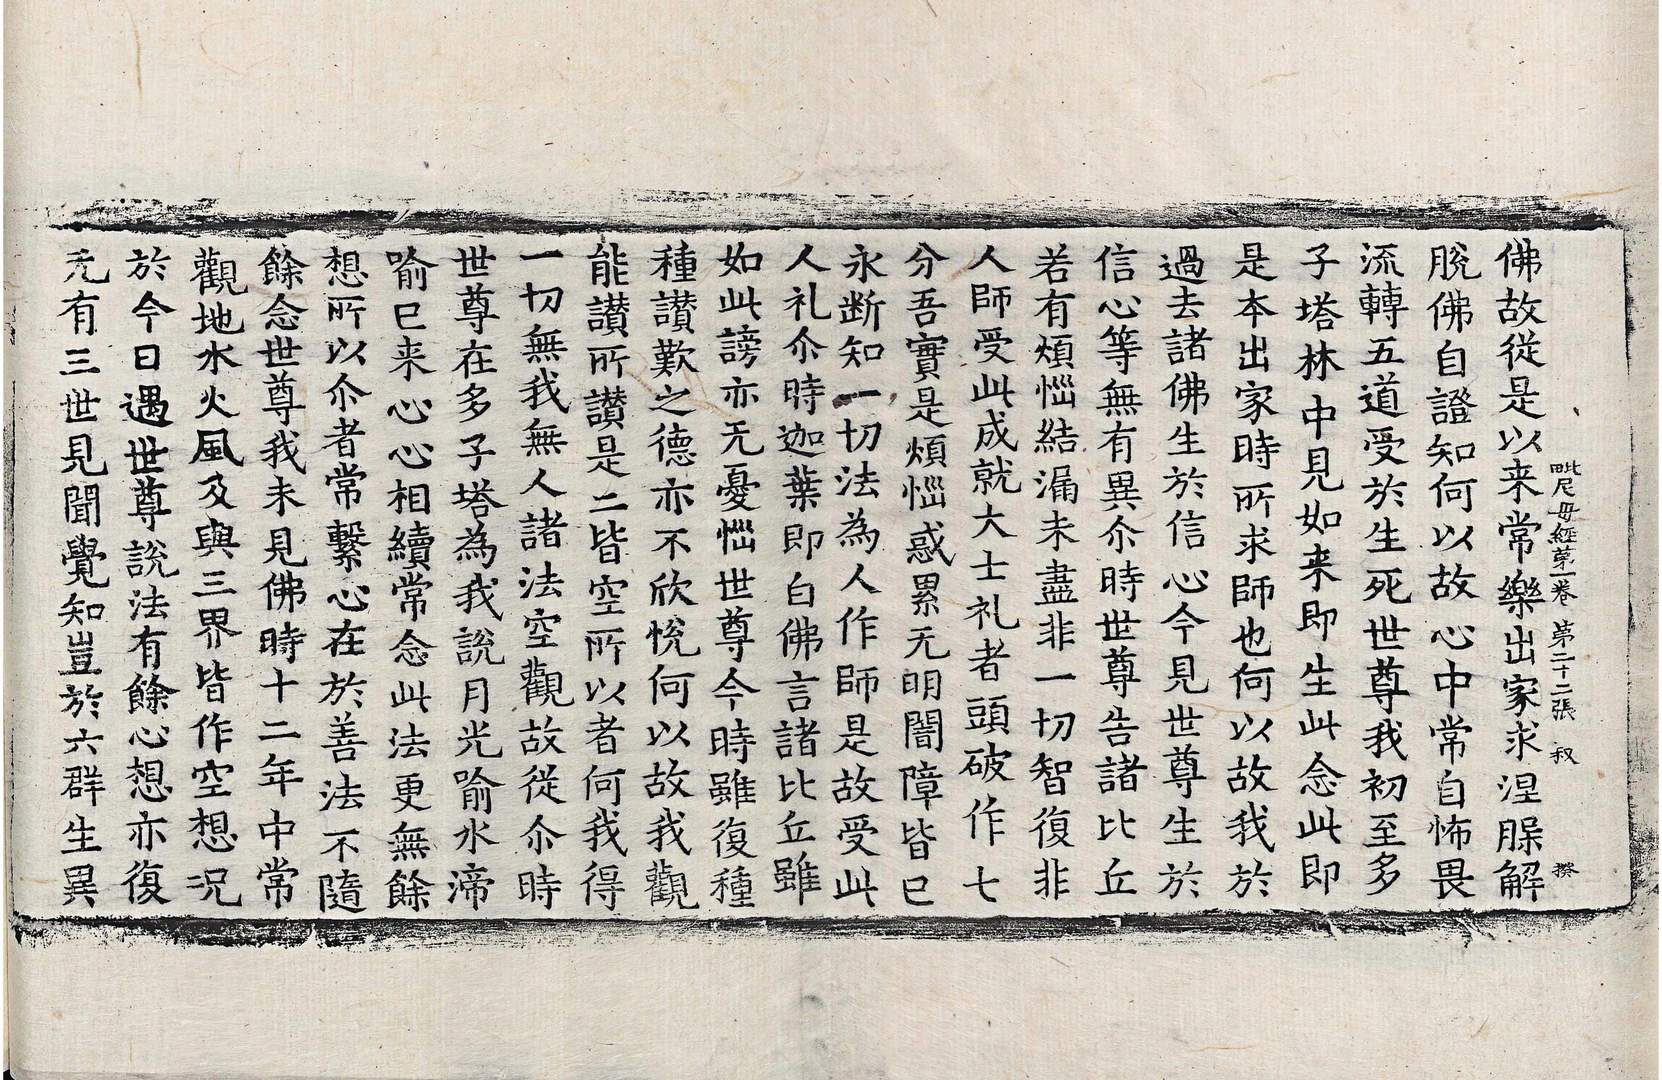 毗尼母經第一卷 第二十二張 叔
佛故從是以来常樂出家求涅槃解
脫佛自證知何以故心中常自怖畏
流轉五道受於生死世尊我初至多
子塔林中見如来即生此念此即
是本出家時所求師也何以故我於
過去諸佛生於信心今見世尊生於
信心等無有異尒時世尊告諸比丘
若有煩惱結漏未盡非一切智復非
人師受此成就大士礼者頭破作七
分吾實是煩惱惑累无明闇障皆已
永断知一切法為人作師是故受此
人礼尒時迦葉即白佛言諸比丘雖
如此謗亦无憂惱世尊今時雖復種
種讃歎之德亦不欣悅何以故我觀
能讃所讃是二皆空所以者何我得
一切無我無人諸法空觀故從尒時
世尊在多子塔為我說月光喻水渧
喻已来心心相續常念此法更無餘
想所以尒者常繫心在於善法不隨
餘念世尊我未見佛時十二年中常
觀地水火風及與三界皆作空想况
於今日遇世尊說法有餘心想亦復
无有三世見聞覺知豈於六群生異